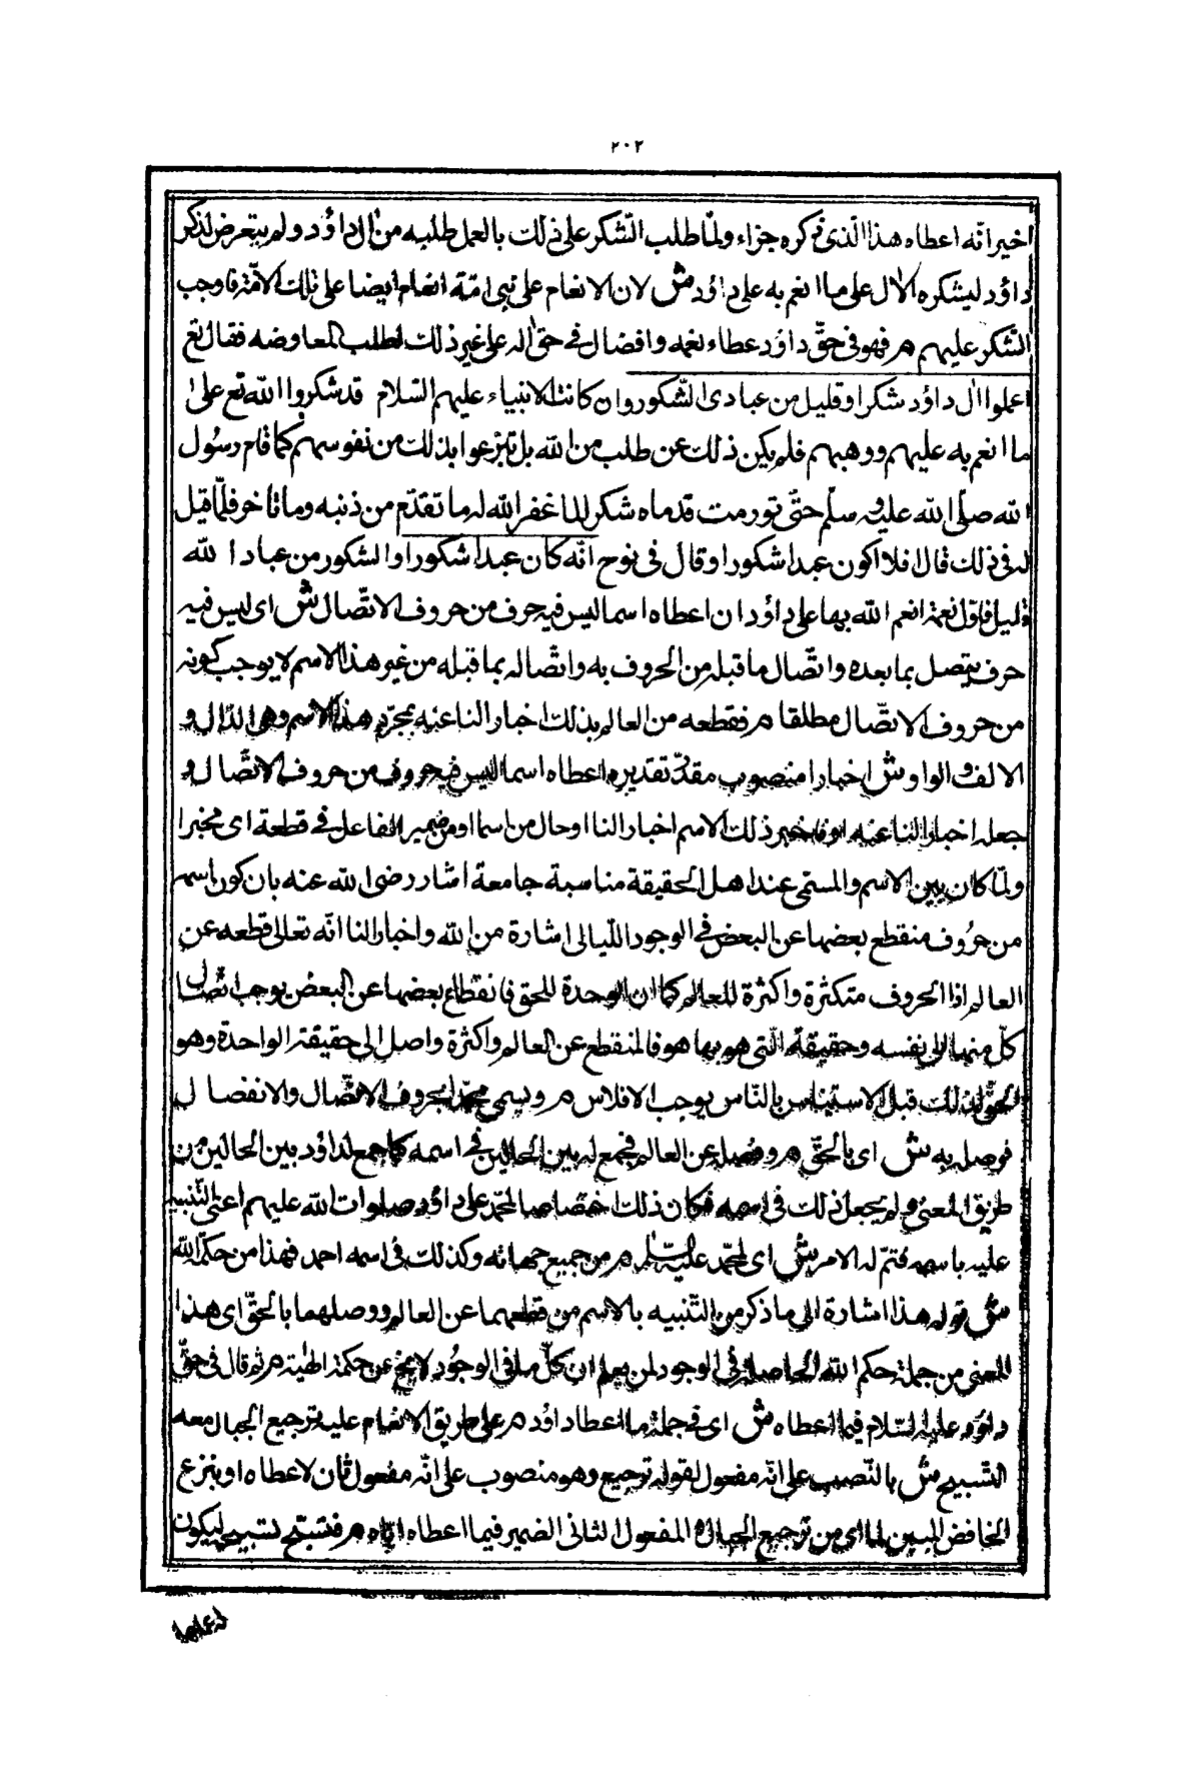 ٢٠٢
اخبر انّه اعطاه هذا الّذى ذكره جزاء ولمّا طلب الشّكر على ذلك بالعمل طلبه من اٰل داؤد ولم يتعرض لذكر
داؤد ليشكره الاٰل على ما انعم به على داؤد ش لان الانعام على نبى امّة انعام ايضا على تلك الامّة فاوجب
الشكر عليهم م فهو فى حقّ داؤد عطاء نعمه وافضال فى حق اٰله على غير ذلك لطلب المعاوضه فقال تع
اعملوا اٰل داؤد شكرا وقليل من عبادى الشّكور وان كانت الانبياء عليهم السّلام قد شكروا اللّه تع على
ما انعم به عليهم ووهبهم فلم يكن ذلك عن طلب من اللّه بل تبرعوا بذلك من نفوسهم كما قام رسول
اللّه صلى اللّه عليه وسلّم حتّى تورمت قدماه شكرا لما غفر اللّه له ما تقدّم من ذنبه وما تاخر فلمّا قيل
له فى ذلك قال افلا اكون عبدا شكورا وقال فى نوح انّه كان عبدا شكورا والشكور من عباد اللّه
قليل فاوّل نعمة انعم اللّه بها على داؤد ان اعطاه اسما ليس فيه حرف من حروف الاتّصال ش اى ليس فيه
حرف يتصل بما بعده واتّصال ما قبله من الحروف به واتّصاله بما قبله من غير هذا الاسم لا يوجب كونه
من حروف الاتّصال مطلقا م فقطعه من العالم بذلك اخبار النا عنه بمجرّد هذا الاسم وهى الدّال و
الالف والواو ش اخبارا منصوب مقدّر تقديره اعطاه اسما ليس فيه حروف من حروف الاتّصال و
جعله اخبار النا عنه او فاخبر ذلك الاسم اخبار النا او حال من اسما او من ضمير الفاعل فى قطعة اى مخبرا
ولمّا كان بين الاسم والمسمّى عند اهل الحقيقة مناسبة جامعة اشار رضى اللّه عنه بان كون اسمه
من حرُوف منقطع بعضها عن البعض فى الوجود اللّيالى اشارة من اللّه واخبار النا انّه تعالى قطعه عن
العالم اذ الحروف متكثرة والكثرة للعالم كما ان الوحدة للحق فانقطاع بعضها عن البعض يوجب اتّصال
كلّ منها الى نفسه وحقيقة الّتى هو بها هو فالمنقطع عن العالم والكثرة واصل الى حقيقته الواحدة وهو
الحقّ لذلك قيل الاستيناس بالنّاس يوجب الافلاس م وسمى محمّدا بحروف الاتّصال والانفصال
فوصله به ش اى بالحقّ م وفصله عن العالم فجمع له بين الحالين فى اسمه كما جمع لداؤد بين الحالين من
طريق المعنى ولم يجعل ذلك فى اسمه فكان ذلك اختصاصا لمحمّد على داؤد صلوات اللّه عليهم اعنى التّنبيه
عليه باسمه فتمّ له الامر ش اى لمحمّد عليه السّلام م من جميع جهاته وكذلك فى اسمه احمد فهذا من حكمة اللّه
ش قوله هذا اشارة الى ما ذكر من التّنبيه بالاسم من قطعهما عن العالم ووصلهما بالحقّ اى هذا
المعنى من جملة حكم اللّه الحاصلة فى الوجود لمن يعلم ان كلّ ما فى الوجُود لا يخ عن حكمة الهٰية م ثم قال فى حقّ
داؤد عليه السّلام فيما اعطاه ش اى فى جملة ما اعطا داؤد م على طريق الانعام عليه ترجيع الجبال معه
التّسبيح ش بالنّصب على انّه مفعول لقوله ترجيع وهو منصوب على انّه مفعول ثان لاعطاه او بنزع
الخافض المبين لما اى من ترجيع الجبال والمفعول الثانى الضمير فيما اعطاه ايّاه م فتسبّح تسبيحه ليكون
له عملها